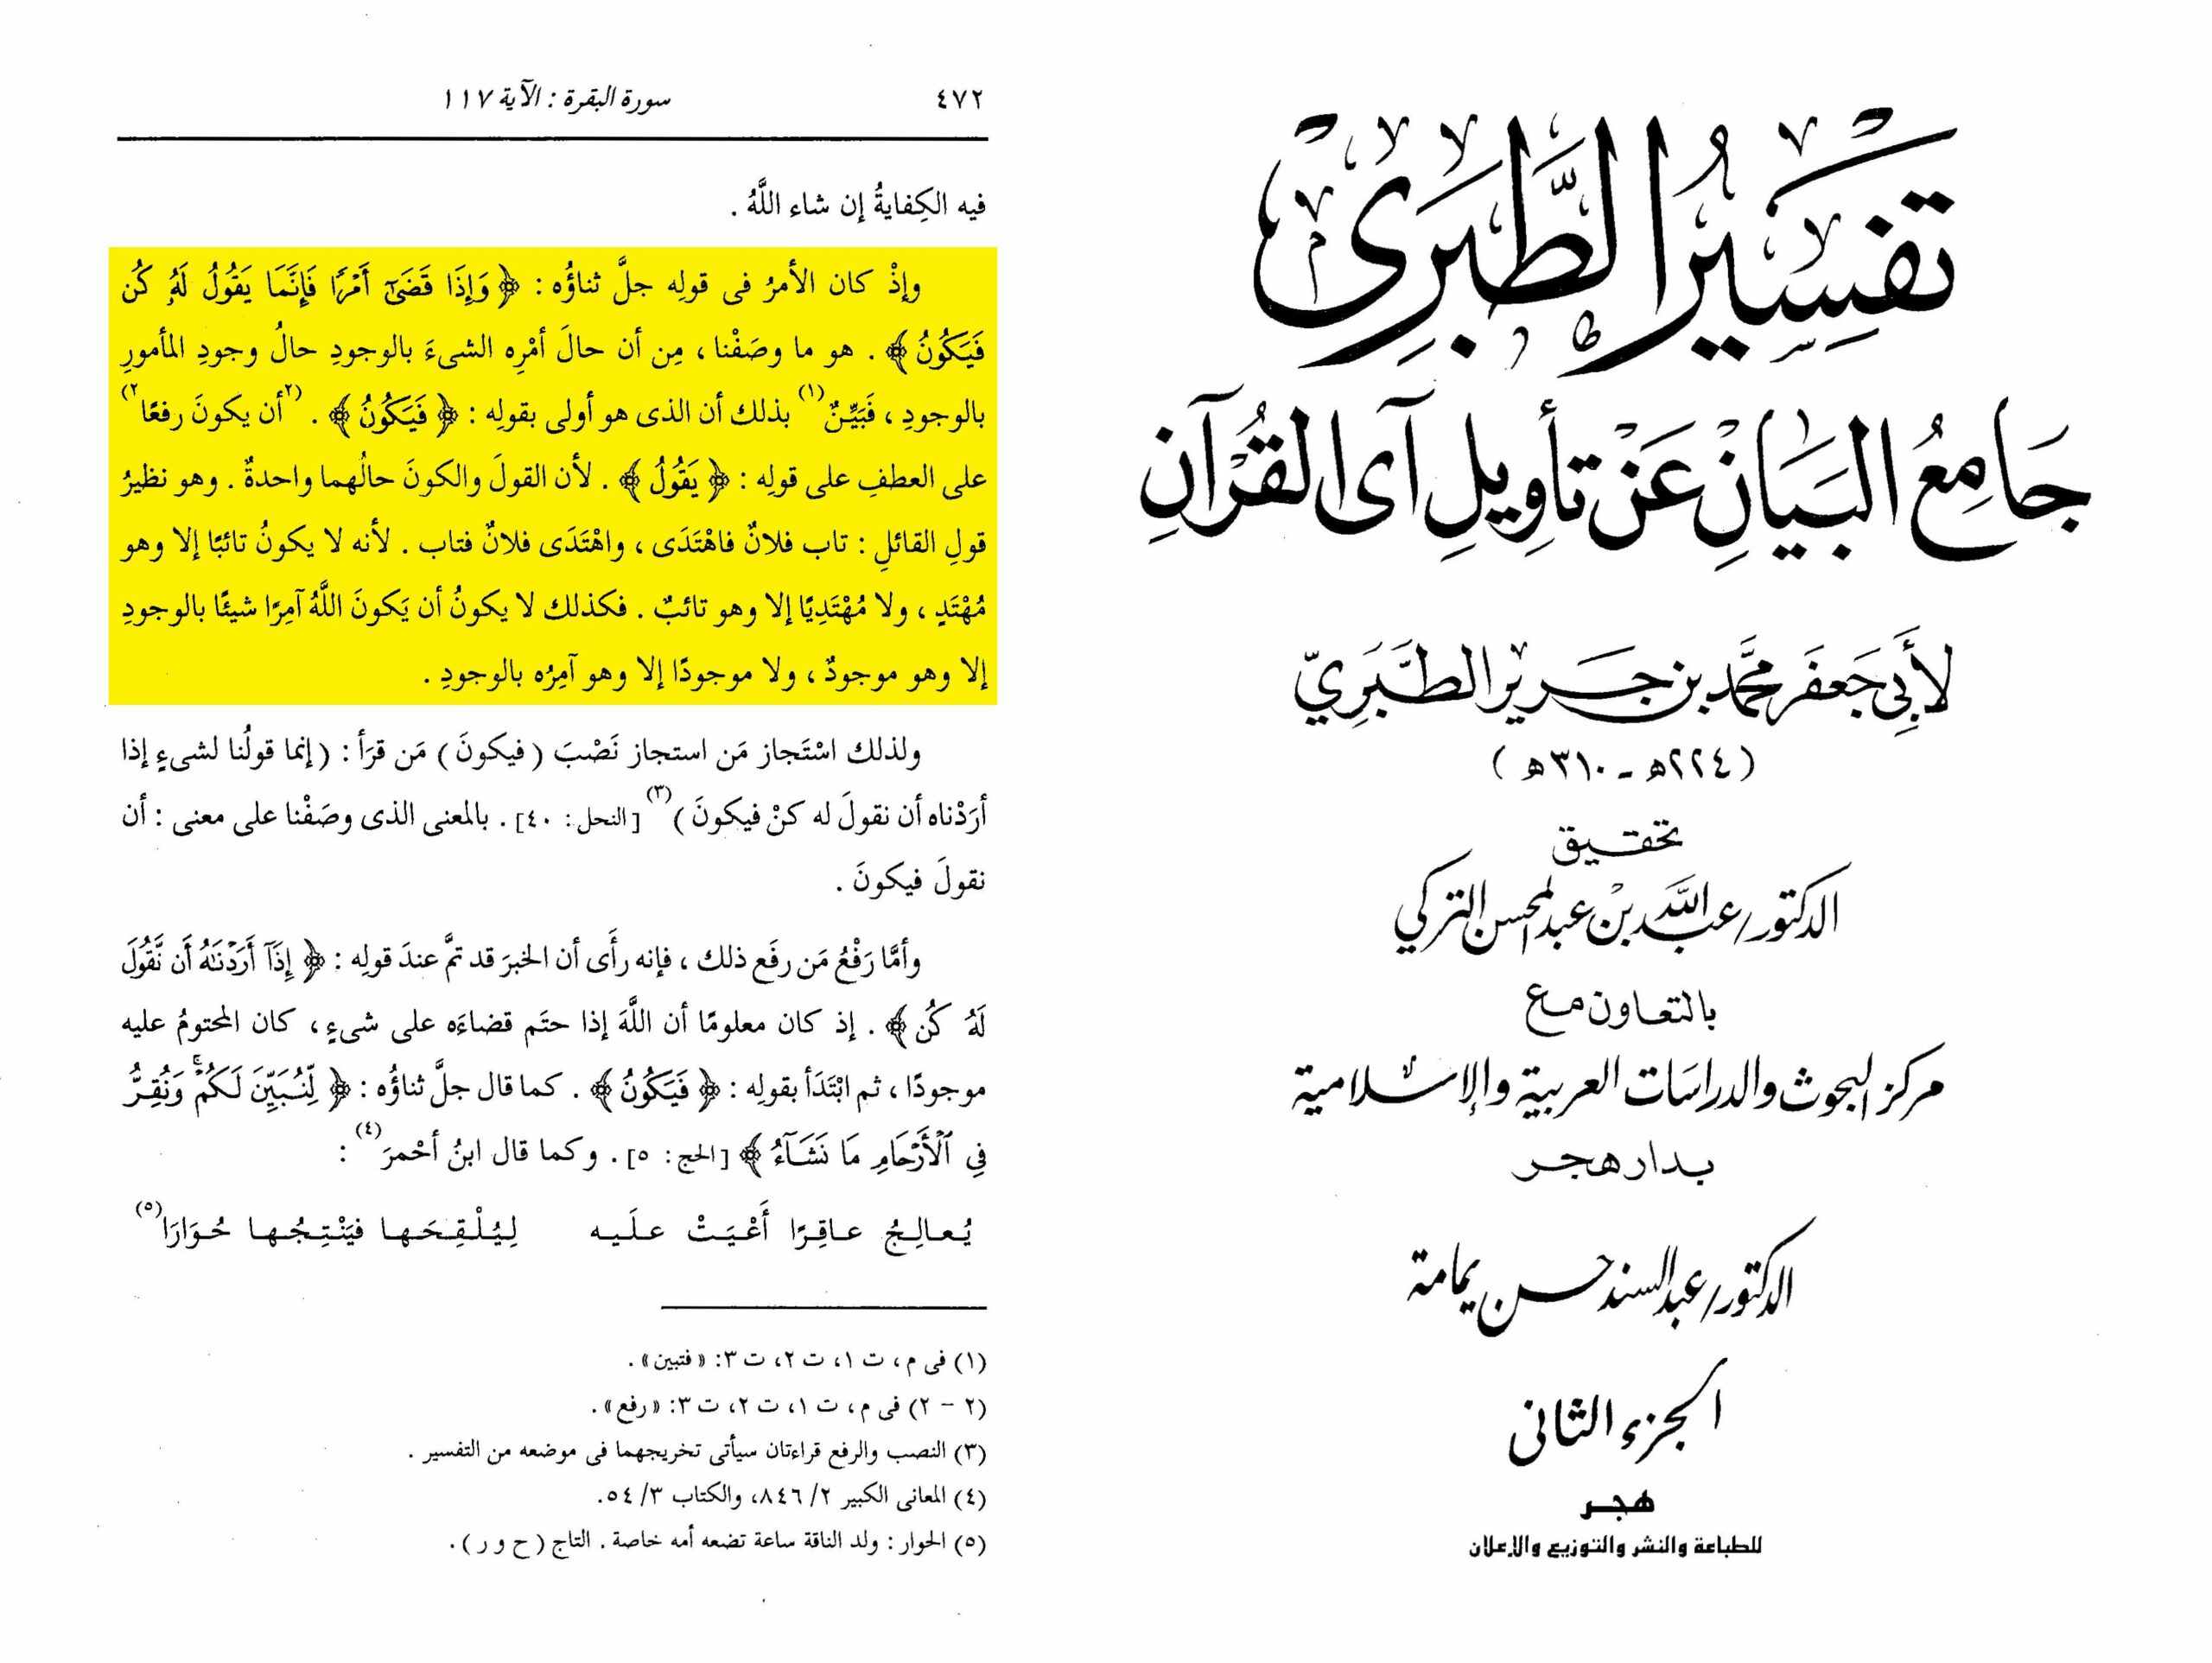 تفسير الطبري
جامع البيان عن تأويل آي القرآن
لأبي جعفر محمد بن جرير الطبري
(٢٢٤هـ - ٣١٠هـ)
تحقيق
الدكتور/ عبد الله بن عبد المحسن التركي
بالتعاون مع
مركز البحوث والدراسات العربية والإسلامية
بدار هجر
الدكتور/ عبد السند حسن يمامة
الجزء الثاني
هجر
للطباعة والنشر والتوزيع والإعلان
٤٧٢ سورة البقرة : الآية ١١٧
فيه الكِفايةُ إن شاء اللَّهُ .
وإذْ كان الأمرُ فى قولِه جلَّ ثناؤُه : ﴿ وَإِذَا قَضَىٰٓ أَمْرًا فَإِنَّمَا يَقُولُ لَهُۥ كُن
فَيَكُونُ ﴾ . هو ما وصَفْنا ، مِن أن حالَ أمْرِه الشىءَ بالوجودِ حالُ وجودِ المأمورِ
بالوجودِ ، فَبَيِّنٌ(١) بذلك أن الذى هو أولى بقولِه : ﴿ فَيَكُونُ ﴾ . (٢أن يكونَ رفعًا٢)
على العطفِ على قولِه : ﴿ يَقُولُ ﴾ . لأن القولَ والكونَ حالُهما واحدةٌ . وهو نظيرُ
قولِ القائلِ : تاب فلانٌ فاهْتَدَى ، واهْتَدَى فلانٌ فتاب . لأنه لا يكونُ تائبًا إلا وهو
مُهْتَدٍ ، ولا مُهْتَدِيًا إلا وهو تائبٌ . فكذلك لا يكونُ أن يَكونَ اللَّهُ آمِرًا شيئًا بالوجودِ
إلا وهو موجودٌ ، ولا موجودًا إلا وهو آمِرُه بالوجودِ .
ولذلك اسْتَجاز مَن استجاز نَصْبَ ( فيكونَ ) مَن قرَأ : ( إنما قولُنا لشىءٍ إذا
أرَدْناه أن نقولَ له كنْ فيكونَ )(٣) [النحل : ٤٠] . بالمعنى الذى وصَفْنا على معنى : أن
نقولَ فيكونَ .
وأمَّا رَفْعُ مَن رفَع ذلك ، فإنه رأَى أن الخبرَ قد تمَّ عندَ قولِه : ﴿ إِذَآ أَرَدْنَٰهُ أَن نَّقُولَ
لَهُۥ كُن ﴾ . إذ كان معلومًا أن اللَّهَ إذا حتَم قضاءَه على شىءٍ ، كان المحتومُ عليه
موجودًا ، ثم ابْتَدَأ بقولِه : ﴿ فَيَكُونُ ﴾ . كما قال جلَّ ثناؤُه : ﴿ لِّنُبَيِّنَ لَكُمْ ۚ وَنُقِرُّ
فِى ٱلْأَرْحَامِ مَا نَشَآءُ ﴾ [الحج : ٥] . وكما قال ابنُ أحْمرَ(٤) :
يُعالِجُ عاقِرًا أَعْيَتْ علَيه لِيُلْقِحَها فيَنْتِجُها حُوَارَا(٥)
(١) فى م ، ت ١، ت ٢، ت ٣: « فتبين » .
(٢ - ٢) فى م ، ت ١، ت ٢، ت ٣: « رفع » .
(٣) النصب والرفع قراءتان سيأتى تخريجهما فى موضعه من التفسير .
(٤) المعانى الكبير ٢/ ٨٤٦، والكتاب ٣/ ٥٤.
(٥) الحوار : ولد الناقة ساعة تضعه أمه خاصة . التاج ( ح و ر ) .